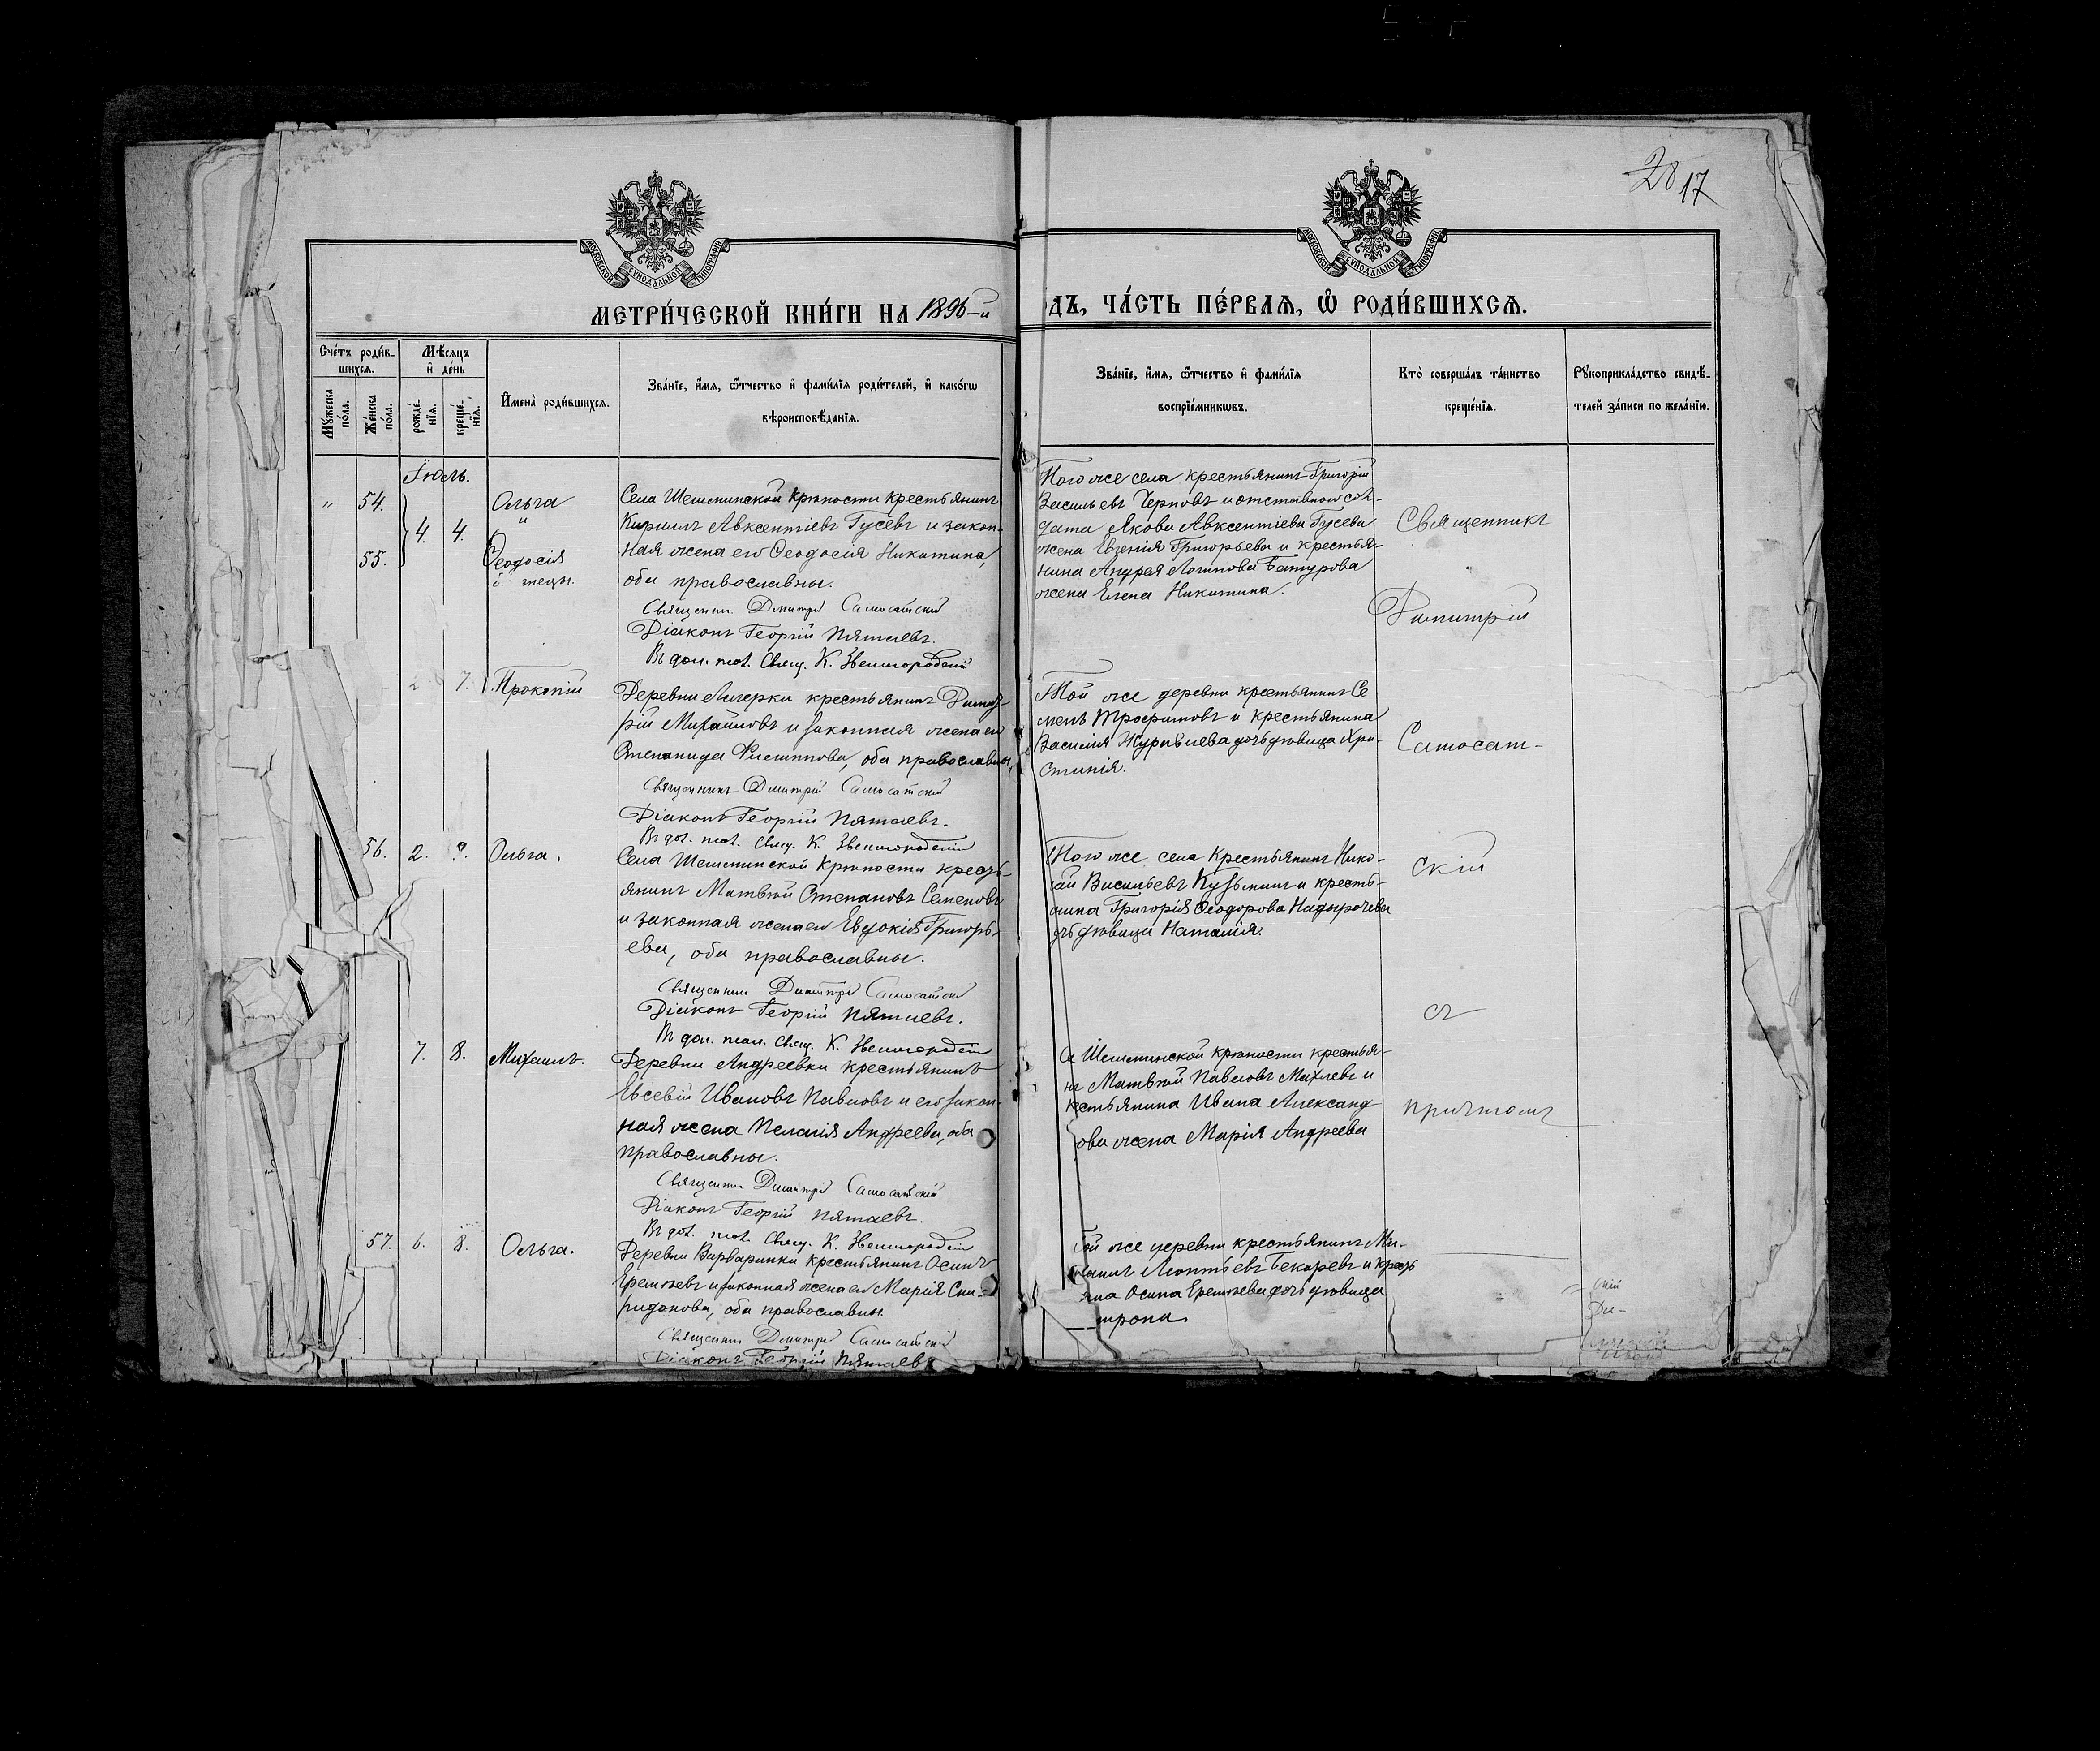 20 17
МОСКОВСКОЙ СѴНОДАЛЬНОЙ ТИПОГРАФІИ
МОСКОВСКОЙ СѴНОДАЛЬНОЙ ТИПОГРАФІИ
МЕТРИ́ЧЕСКОЙ КНИ́ГИ НА 1896-й
ДЪ, ЧА́СТЬ ПЕ́РВАЯ, Ѽ РОДИ́ВШИХСЯ.
Сче́тъ роди́в-
шихся.
Мꙋ́жеска по́ла.
Же́нска по́ла.
Мѣ́сяцъ
и҆ де́нь
рожде́-нїя.
креще́-нїя.
И҆мена̀ роди́вшихся.
Зва́нїе, и҆́мя, ѻ҆́тчество и҆ фами́лїя роди́телей, и҆ како́гѡ
вѣроисповѣ́данїя.
Зва́нїе, и҆́мя, ѻ҆́тчество и҆ фами́лїя
воспрїе́мникѡвъ.
Кто̀ соверша́лъ та́инство
креще́нїя.
Рꙋкоприкла́дство свидѣ́-
телей за́писи по жела́нїю.
Іюль.
" 54. 4. 4. Ольга
и
55. Ѳеодосія
близнецы.
Села Шешминской крѣпости крестьянинъ
Кириллъ Авксентіевъ Гусевъ и закон-
ная жена его Ѳеодосія Никитина,
оба православны.
Священник Димитрій Самосатскій
Діаконъ Георгій Пятаевъ.
В. К. Звенигородскій
Того же села крестьянинъ Григорій
Васильевъ Черновъ и отставного сол-
дата Якова Авксентіева Гусева
жена Евгенія Григорьева и крестья-
нина Андрея Логинова Батурова
жена Елена Никитина.
Священникъ
Димитрій
2 7. Прокопій
Деревни крестьянинъ Димит-
рій Михайловъ и законная жена его
Степанида Филиппова, оба православны,
Священникъ Димитрій Самосатскій
Діаконъ Георгій Пятаевъ.
Свящ. К. Звенигородскій
Той же деревни крестьянинъ Се
менъ Трофимовъ и крестьянина
Василія Журавлева дочь дѣвица Хри-
стинія.
Самосат-
56. 2. 7. Ольга.
Села Шешминской Крѣпости кресть-
янинъ Матвѣй Степановъ Семеновъ
и законная жена его Евдокія Григорь-
ева, оба православны.
Священник Димитрій Самосатскій
Діаконъ Георгій Пятаевъ.
Свящ. К. Звенигородскій
Того же села Крестьянинъ Нико-
лай Васильевъ Кузьминъ и кресть-
янина Григорія Ѳеодорова
дѣвица Наталія.
скій
съ
7. 8. Михаилъ.
Деревни Андреевки крестьянинъ
Евсевій Ивановъ Павловъ и его закон-
ная жена Пелагія Андреева, оба
православны.
Священник Димитрій Самосатскій
Діаконъ Георгій Пятаевъ.
Свящ. К. Звенигородскій
Шешминской крѣпости крестья-
нъ Матвѣй Павловъ Махлевъ и
крестьянина Ивана Александ
рова жена Марія Андреева
причтомъ
57. 6. 8. Ольга.
Деревни Варваринки крестьянинъ Осипъ
Еремѣевъ и законная жена его Марія Спи-
ридонова, оба православны
Священник Димитрій Самосатскій
Діаконъ Георгій Пятаевъ
Той же деревни крестьянинъ Ми-
хаилъ Леонтьевъ Бекаревъ и кресть
яна Осипа Еремѣева дочь дѣвица
трона
скій
Ди-